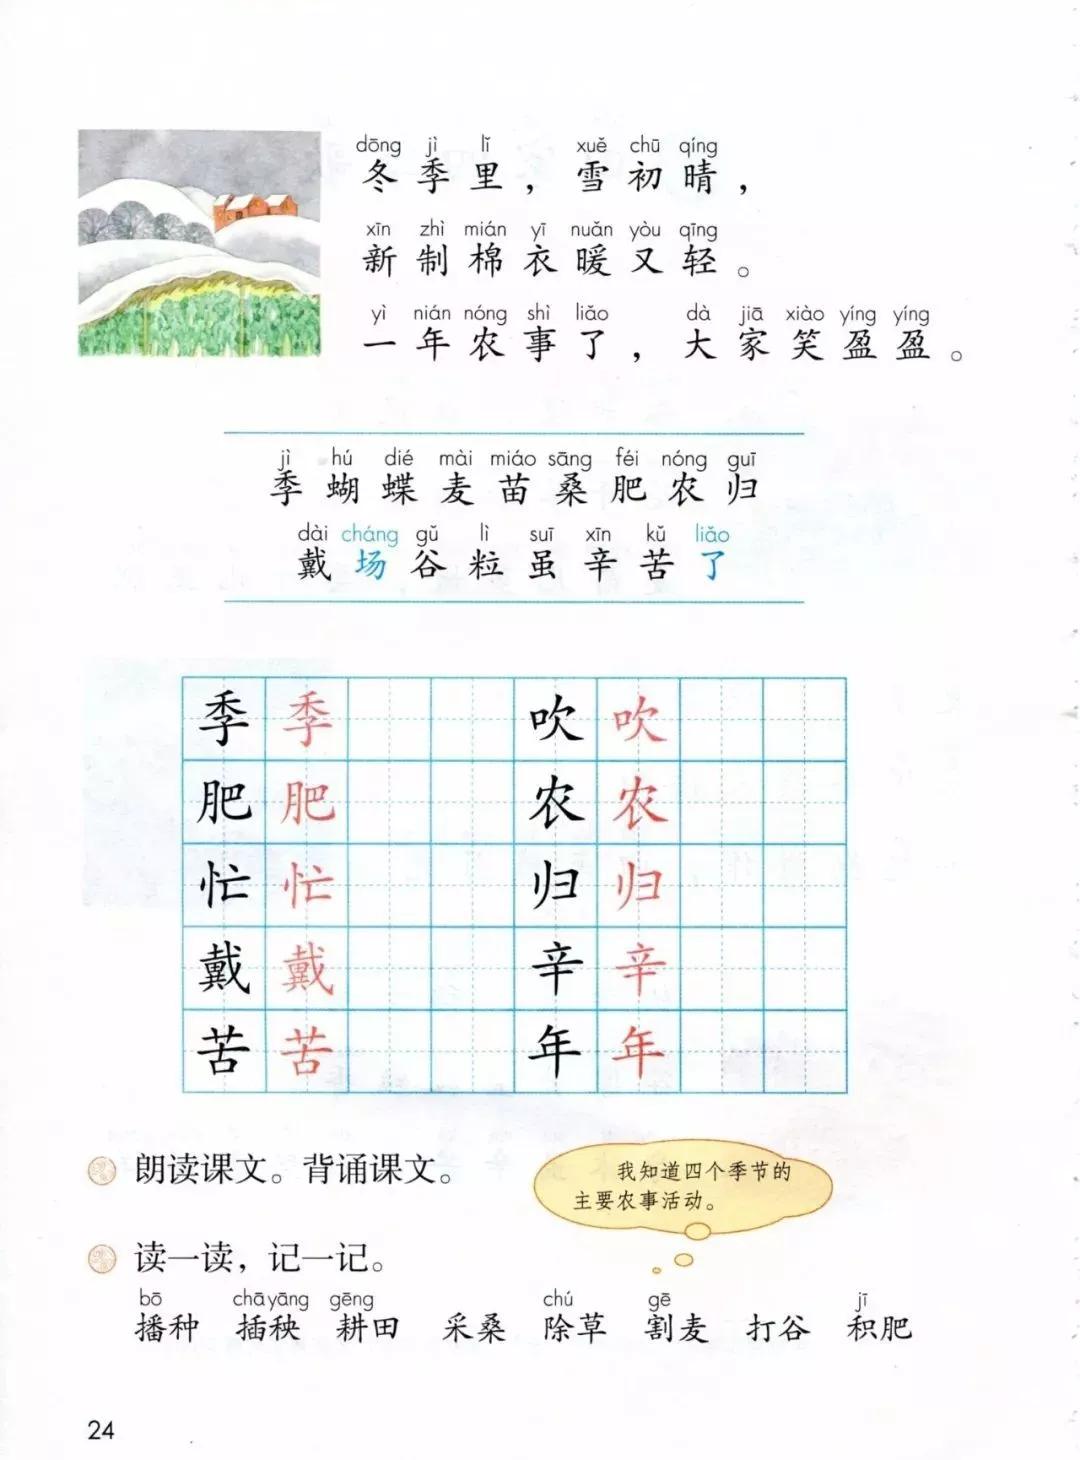 dōng jì lǐ xuě chū qíng
冬季里，雪初晴，
xīn zhì mián yī nuǎn yòu qīng
新制棉衣暖又轻。
yì nián nóng shì liǎo dà jiā xiào yíng yíng
一年农事了，大家笑盈盈。
jì hú dié mài miáo sāng féi nóng guī
季蝴蝶麦苗桑肥农归
dài cháng gǔ lì suī xīn kǔ liǎo
戴场谷粒虽辛苦了
季 季 吹 吹
肥 肥 农 农
忙 忙 归 归
戴 戴 辛 辛
苦 苦 年 年
朗读课文。背诵课文。
我知道四个季节的
主要农事活动。
读一读，记一记。
bō chāyāng gēng chú gē jī
播种 插秧 耕田 采桑 除草 割麦 打谷 积肥
24